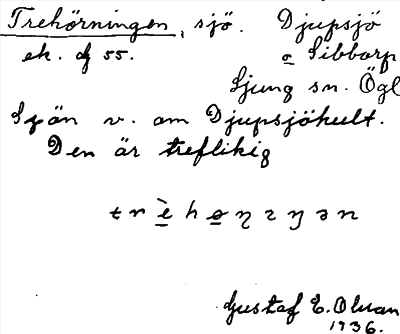 Trehörningen, sjö. Djupsjö
ek. bl 55. o Sibborp
Ljung sn. Ögl
Sjön v. om Djupsjöhult.
Den är treflikig
Gustaf E. Olsson
1936.